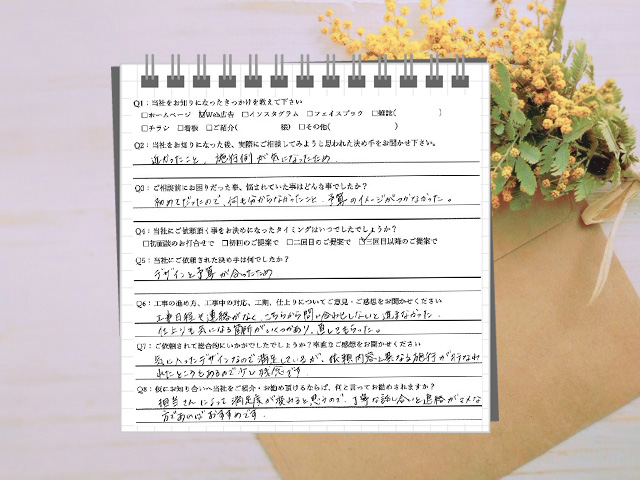 Q1：当社をお知りになったきっかけを教えて下さい
□ホームページ ☑Web広告 □インスタグラム □フェイスブック □雑誌( )
□チラシ □看板 □ご紹介( 様) □その他( )
Q2：当社をお知りになった後、実際にご相談してみようと思われた決め手をお聞かせ下さい。
近かったこと、施行例が気になったため
Q3：ご相談前にお困りだった事、悩まれていた事はどんな事でしたか？
初めてだったので、何も分からなかったこと、予算のイメージがつかなかった。
Q4：当社にご依頼頂く事をお決めになったタイミングはいつでしたでしょうか？
□初面談のお打合せで □初回のご提案で □二回目のご提案で ☑三回目以降のご提案で
Q5：当社にご依頼された決め手は何でしたか？
デザインと予算が合ったため
Q6：工事の進め方、工事中の対応、工期、仕上りについてご意見・ご感想をお聞かせください
工事日程も連絡がなく、こちらから問い合わせしないと進まなかった。
仕上りも気になる箇所がいくつかあり、直してもらった。
Q7：ご依頼されて総合的にいかがでしたでしょうか？率直なご感想をお聞かせください
気に入ったデザインなので満足しているが、依頼内容と異なる施行が行なわ
れたところもあるので少し残念です
Q8：仮にお知り合いへ当社をご紹介・お勧め頂けるならば、何と言ってお勧めされますか？
担当さんによって満足度が変わると思うので、丁寧な話し合いと連絡がマメな
方であればおすすめです